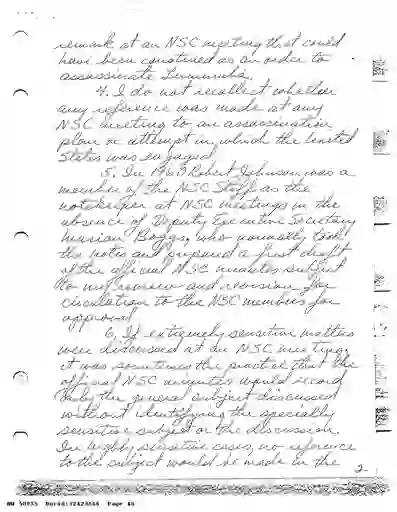 remark at an NSC meeting that could
have been construed as an order to
assassinate Lumumba.
4. I do not recollect whether
any reference was made at any
NSC meeting to an assassination
plan or attempt in which the United
States was engaged.
5. In Robert Johnson was a
member of the NSC Staff as the
notetaker at NSC meetings in the
absence of Deputy Executive Secretary
Marion Boggs, who normally took
the notes and prepared a first draft
of the official NSC minutes subject
to my review and revision for
circulation to the NSC members for
approval.
6. If extremely sensitive matters
were discussed at an NSC meeting,
it was sometimes the practice that the
official NSC minutes would record
only the general subject discussed
without identifying the specially
sensitive subject of the discussion.
In highly sensitive cases, no reference
to the subject would be made in the
2
Page